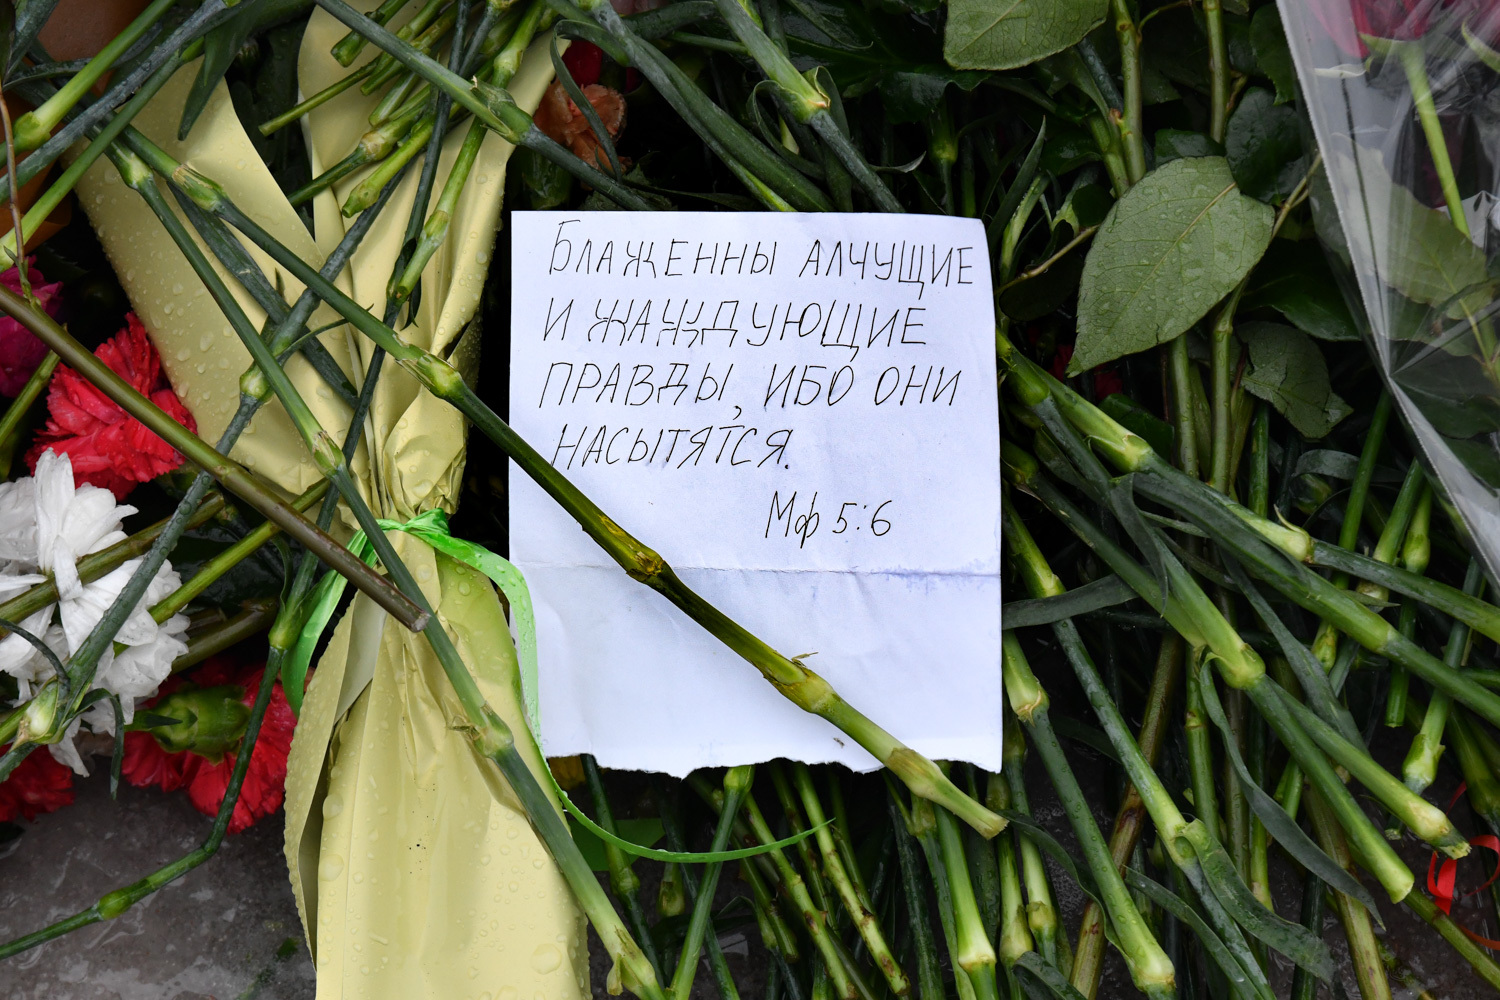 Блаженны алчущие
и жаждующие
правды, ибо они
насытятся.
Мф 5:6